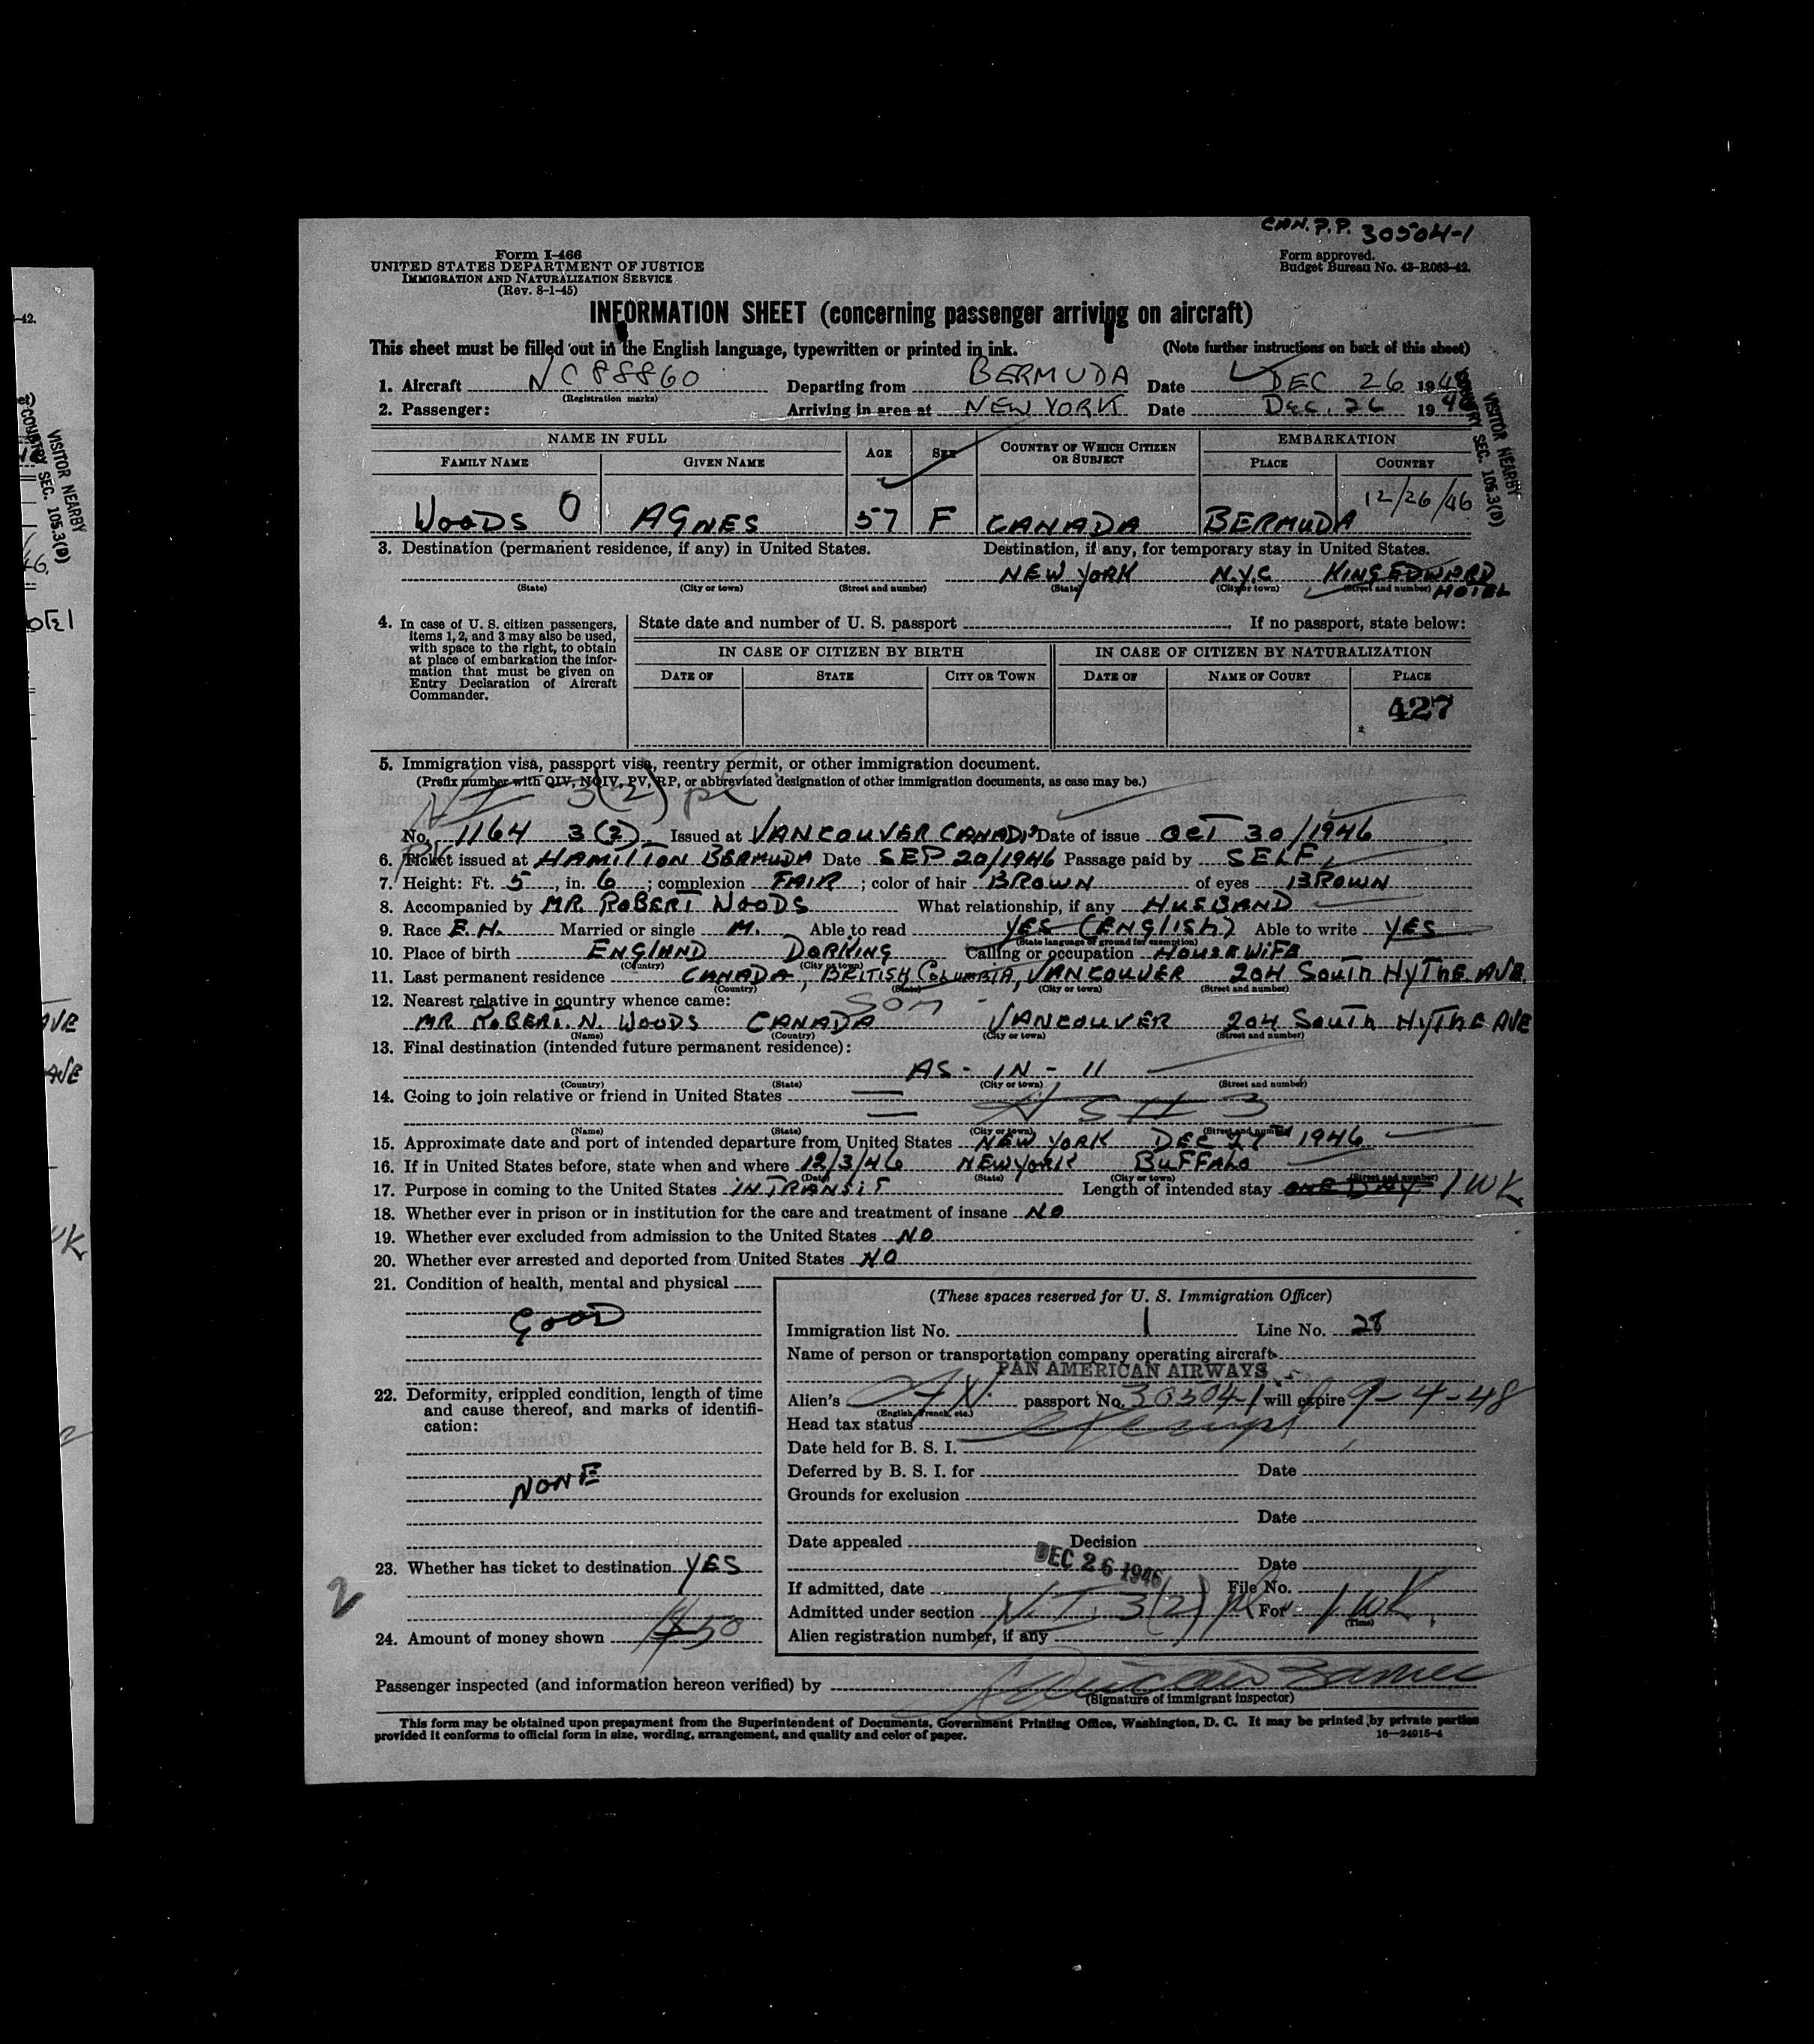 CAN. P.P. 30504-1
Form I-466
UNITED STATES DEPARTMENT OF JUSTICE
IMMIGRATION AND NATURALIZATION SERVICE
(Rev. 8-1-45)
Form approved.
Budget Bureau No. 43-R063-42.
INFORMATION SHEET (concerning passenger arriving on aircraft)
This sheet must be filled out in the English language, typewritten or printed in ink. (Note further instructions on back of this sheet)
1. Aircraft NC88860 Departing from BERMUDA Date DEC 26 1946
(Registration marks)
2. Passenger: Arriving in area at NEW YORK Date DEC. 26 1946
VISITOR NEARBY
COUNTRY SEC. 105.3(D)
NAME IN FULL AGE SEX COUNTRY OF WHICH CITIZEN OR SUBJECT EMBARKATION
FAMILY NAME GIVEN NAME PLACE COUNTRY
12/26/46
WOODS O AGNES 57 F CANADA BERMUDA
3. Destination (permanent residence, if any) in United States. Destination, if any, for temporary stay in United States.
NEW YORK N.Y.C KING EDWARD HOTEL
(State) (City or town) (Street and number) (State) (City or town) (Street and number)
4. In case of U. S. citizen passengers, items 1, 2, and 3 may also be used, with space to the right, to obtain at place of embarkation the information that must be given on Entry Declaration of Aircraft Commander.
State date and number of U. S. passport If no passport, state below:
IN CASE OF CITIZEN BY BIRTH IN CASE OF CITIZEN BY NATURALIZATION
DATE OF STATE CITY OR TOWN DATE OF NAME OF COURT PLACE
427
5. Immigration visa, passport visa, reentry permit, or other immigration document.
(Prefix number with QIV, NQIV, PV, RP, or abbreviated designation of other immigration documents, as case may be.)
3(2)
No. 1164 3(2) Issued at VANCOUVER CANADA Date of issue OCT 30/1946
PV
6. Ticket issued at HAMILTON BERMUDA Date SEP 20/1946 Passage paid by SELF
7. Height: Ft. 5, in. 6; complexion FAIR; color of hair BROWN of eyes BROWN
8. Accompanied by MR. ROBERT WOODS What relationship, if any HUSBAND
9. Race E.H. Married or single M. Able to read YES (ENGLISH) Able to write YES
(State language or ground for exemption)
10. Place of birth ENGLAND DORKING Calling or occupation HOUSEWIFE
(Country) (City or town)
11. Last permanent residence CANADA, BRITISH COLUMBIA, VANCOUVER 204 SOUTH HYTHE AVE
(Country) (State) (City or town) (Street and number)
12. Nearest relative in country whence came: SON
MR ROBERT. N. WOODS CANADA VANCOUVER 204 SOUTH HYTHE AVE
(Name) (Country) (City or town) (Street and number)
13. Final destination (intended future permanent residence):
AS - IN - 11
(Country) (State) (City or town) (Street and number)
14. Going to join relative or friend in United States
(Name) (State) (City or town) (Street and number)
15. Approximate date and port of intended departure from United States NEW YORK DEC 27th 1946
16. If in United States before, state when and where 12/3/46 NEW YORK BUFFALO
(Date) (State) (City or town) (Street and number)
17. Purpose in coming to the United States IN TRANSIT Length of intended stay ONE DAY 1 WK
18. Whether ever in prison or in institution for the care and treatment of insane NO
19. Whether ever excluded from admission to the United States NO
20. Whether ever arrested and deported from United States NO
21. Condition of health, mental and physical
GOOD
22. Deformity, crippled condition, length of time and cause thereof, and marks of identification:
NONE
23. Whether has ticket to destination YES
2
24. Amount of money shown $50
(These spaces reserved for U. S. Immigration Officer)
Immigration list No. 1 Line No. 28
Name of person or transportation company operating aircraft
PAN AMERICAN AIRWAYS
Alien's passport No. 30504-1 will expire 9-4-48
(English, French, etc.)
Head tax status exempt
Date held for B. S. I.
Deferred by B. S. I. for Date
Grounds for exclusion
Date
Date appealed Decision
DEC 26 1946 Date
If admitted, date File No.
Admitted under section 3(2) For 1 WK.
(Time)
Alien registration number, if any
Passenger inspected (and information hereon verified) by
(Signature of immigrant inspector)
This form may be obtained upon prepayment from the Superintendent of Documents, Government Printing Office, Washington, D. C. It may be printed by private parties
provided it conforms to official form in size, wording, arrangement, and quality and color of paper. 16—24915-4